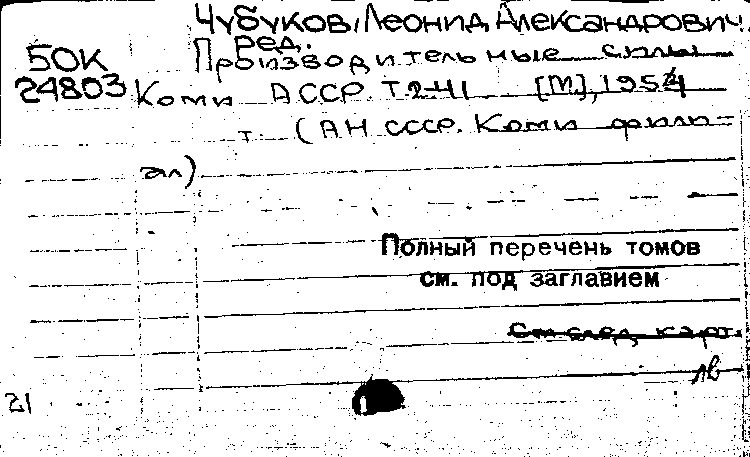 Чубуков, Леонид Александрович,
ред.
БОК
24803
Производительные силы
Коми АССР. Т.2-41 [М], 1954
т. (АН СССР. Коми фили=
ал)
Полный перечень томов
см. под заглавием
См след карт.
лв
21